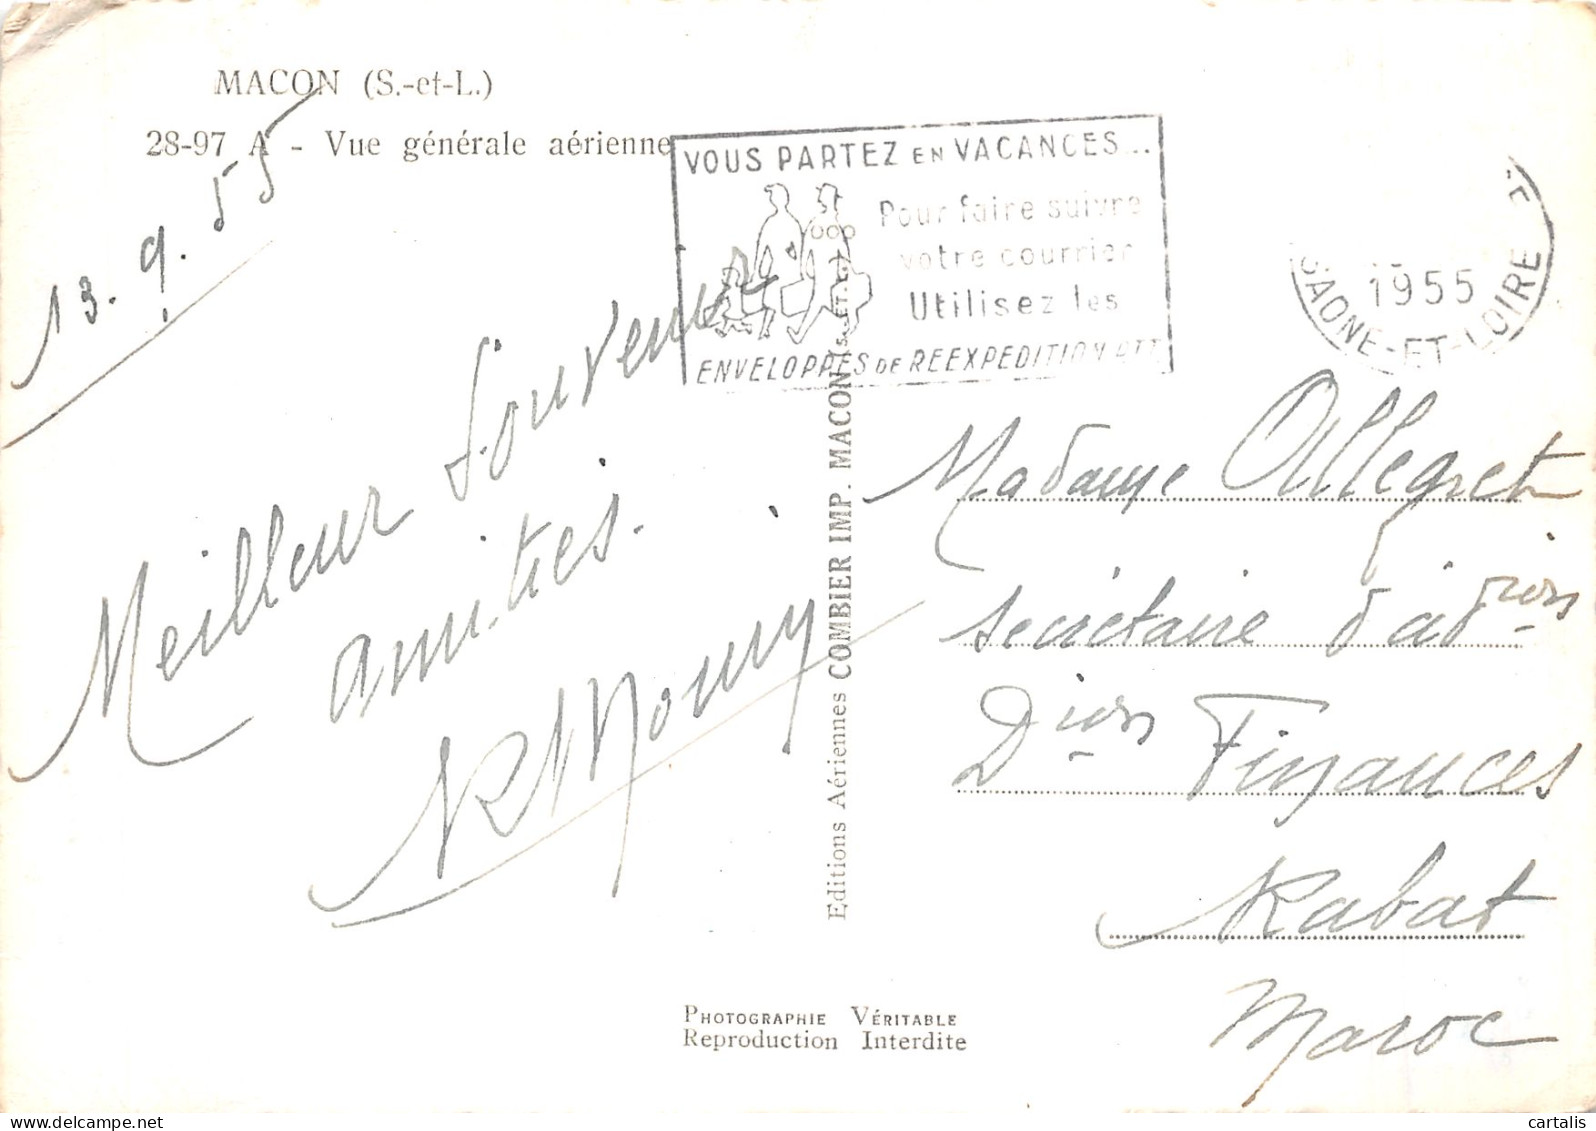 MACON (S.-et-L.)
28-97 A - Vue générale aérienne
13.9.55
Meilleur Souvenir
Amitiés.
VOUS PARTEZ EN VACANCES...
Pour faire suivre
votre courrier
Utilisez les
ENVELOPPES DE REEXPEDITION PTT
1955
SAONE-ET-LOIRE
Madame Allegret
secrétaire d'adion
Dion Finances
Rabat
Maroc
Editions Aériennes COMBIER IMP. MACON (S.-ET-L.)
PHOTOGRAPHIE VÉRITABLE
Reproduction Interdite
cartalis